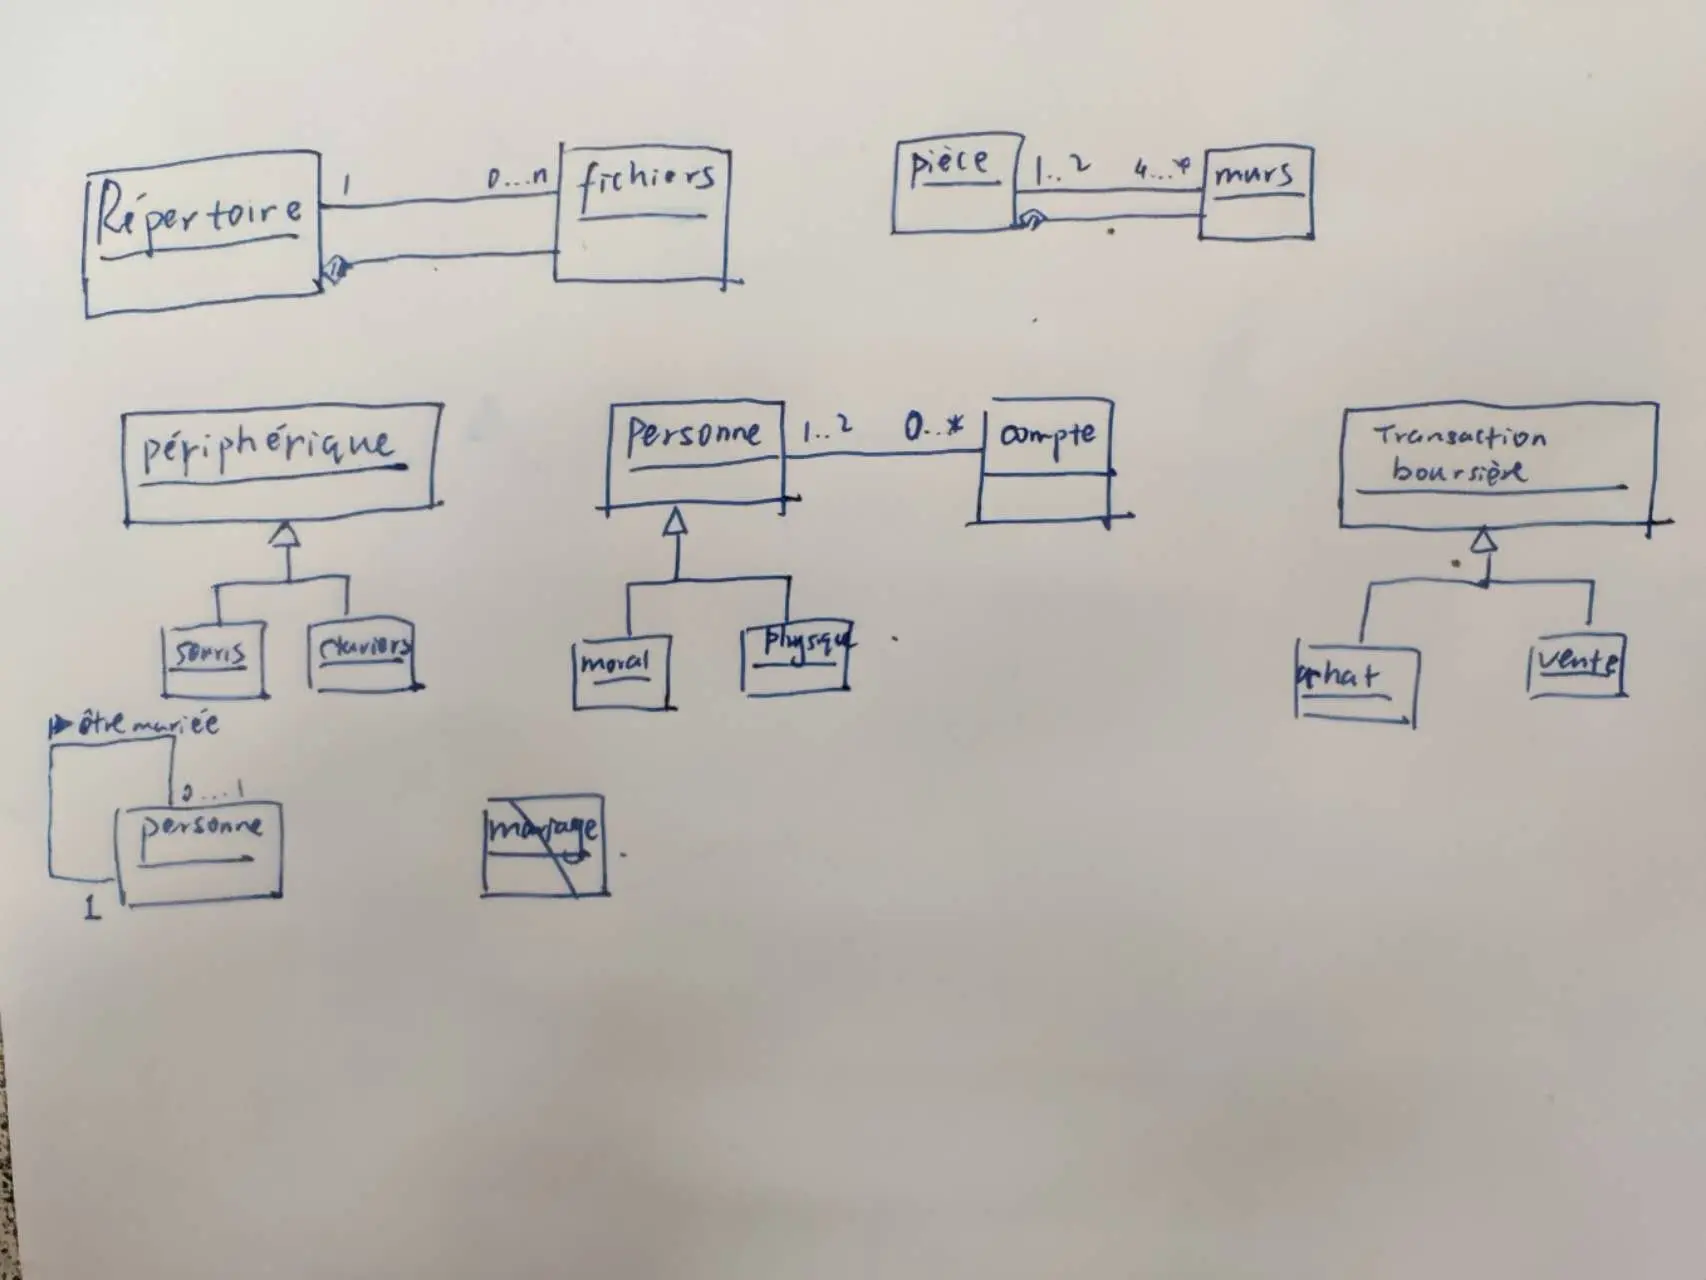 Répertoire
1
0...n
fichiers
pièce
1..2
4...*
murs
périphérique
souris
claviers
Personne
1..2
0...*
compte
moral
physique
Transaction
boursière
achat
vente
être mariée
0....1
personne
1
mariage